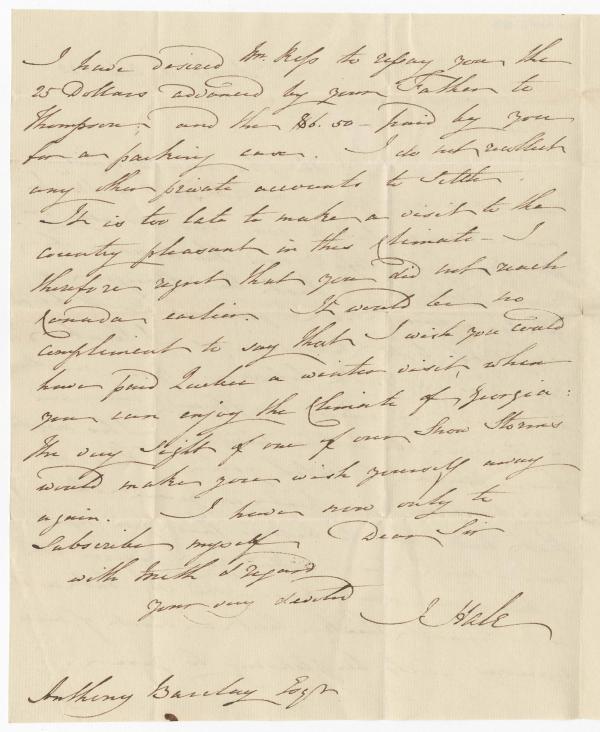 I have desired Mr. Ross to repay you the
25 Dollars advanced by your Father to
Thompson, and the $6.50 - paid by you
for a packing case. I do not recollect
any other private accounts to settle.
It is too late to make a visit to the
country pleasant in this Climate - I
therefore regret that you did not reach
Canada earlier. It would be no
compliment to say that I wish you could
have paid Quebec a winter visit, when
you can enjoy the Climate of Georgia:
the very sight of one of our Snow Storms
would make you wish yourself away
again. I have now only to
Subscribe myself Dear Sir
with truth & regard
your very devoted
J Hale
Anthony Barclay Esqr